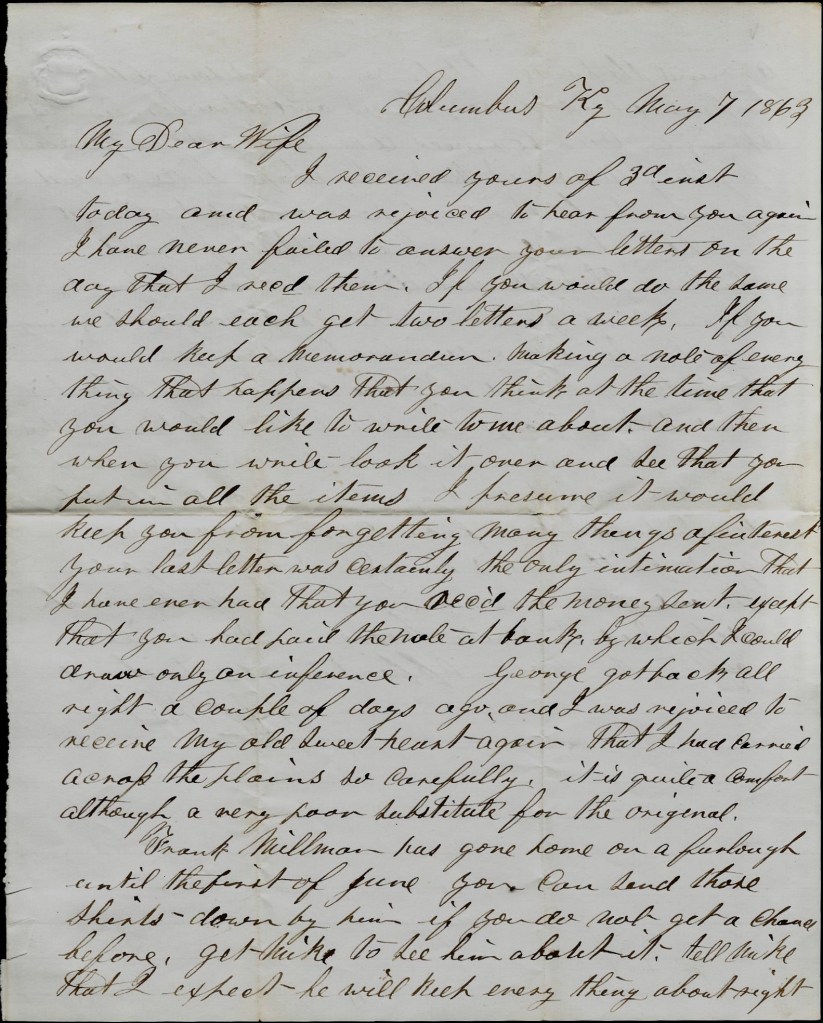 Columbus Ky May 7 1863
My Dear Wife
I received yours of 3d inst
today and was rejoiced to hear from you again
I have never failed to answer your letters on the
day that I recd them. If you would do the same
we should each get two letters a week. If you
would keep a memorandum. making a note of every
thing that happens that you think at the time that
you would like to write to me about. and then
when you write look it over and see that you
put in all the items I presume it would
keep you from forgetting many things of interest
your last letter was certainly the only intimation that
I have ever had that you rec'd the money sent. except
that you had paid the note at bank. by which I could
draw only an inference. George got back all
right a couple of days ago, and I was rejoiced to
receive my old sweet heart again that I had carried
across the plains so carefully. it is quite a comfort
although a very poor substitute for the original.
Frank Millman has gone home on a furlough
until the first of June you can send those
shirts down by him if you do not get a chance
before. get Mike to see him about it. tell Mike
that I expect he will keep every thing about right